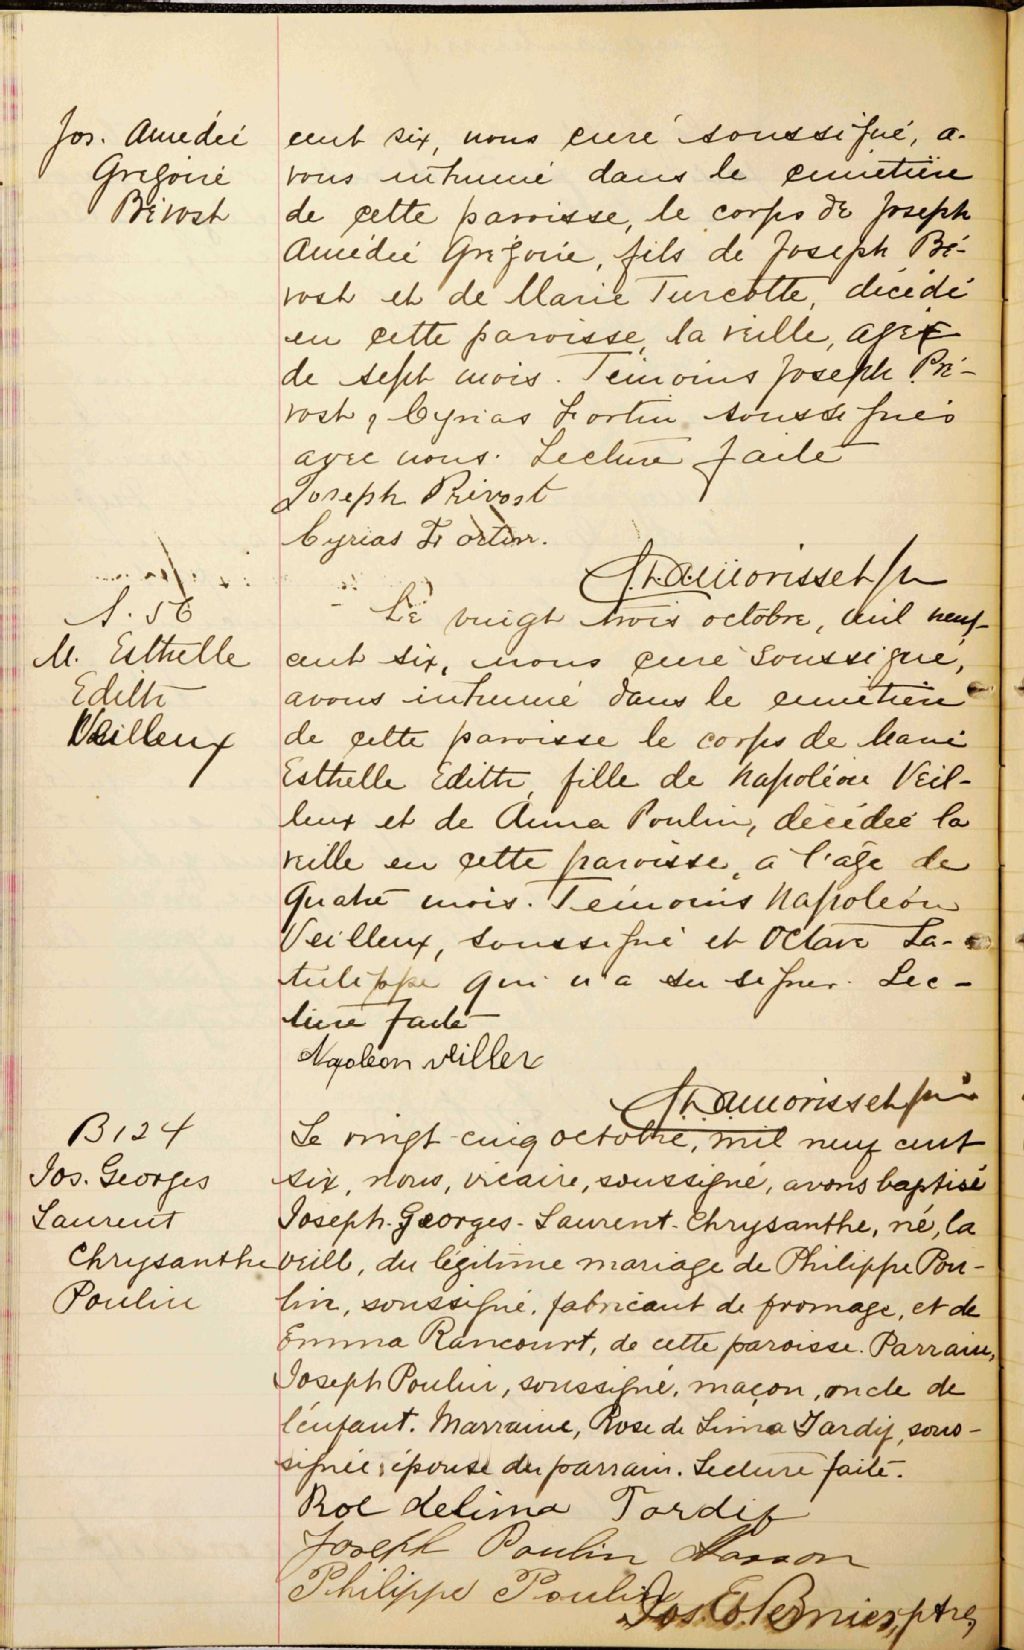 Jos. Amédée
Grégoire
Prévost
cent six, nous curé soussigné, a-
vons inhumé dans le cimetière
de cette paroisse, le corps de Joseph
Amédée Grégoire, fils de Joseph Pré-
vost et de Marie Turcotte, décédé
en cette paroisse, la veille, agé
de sept mois. Témoins Joseph Pré-
vost, Cyrias Fortin soussignés
avec nous. Lecture faite
Joseph Prévost
Cyrias Fortin.
Morisset
S. 56
M. Esthelle
Edith
Veilleux
Le vingt trois octobre, mil neuf
cent six, nous curé soussigné,
avons inhumé dans le cimetière
de cette paroisse le corps de Marie
Esthelle Edith, fille de Napoléon Veil-
leux et de Anna Poulin, décédée la
veille en cette paroisse, a l'âge de
quatre mois. Témoins Napoléon
Veilleux, soussigné et Octave La-
tulippe qui n'a su signer. Lec-
ture faite
Napoleon veillex
Morisset
B124
Jos. Georges
Laurent
Chrysanthe
Poulin
Le vingt-cinq octobre, mil neuf cent
six, nous, vicaire, soussigné, avons baptisé
Joseph-Georges-Laurent-Chrysanthe, né, la
veill, du légitime mariage de Philippe Pou-
lin, soussigné, fabricant de fromage, et de
Emma Rancourt, de cette paroisse. Parrain,
Joseph Poulin, soussigné, maçon, oncle de
l'enfant. Marraine, Rose de Lima Tardif, sous-
signée, épouse du parrain. Lecture faite.
Rol delima Tardif
Joseph Poulin Masson
Philippe Poulin
Jos. E. Bernier, ptre,